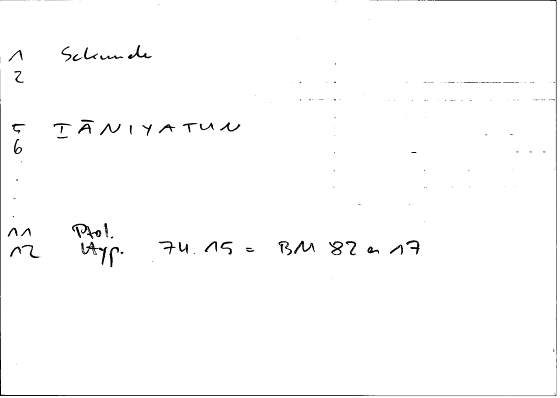 1 Sekunde
2
5 TĀNIYATUN
6
.
.
.
11 Ptol.
12 Hyp. 74.15 = BM 82 a 17